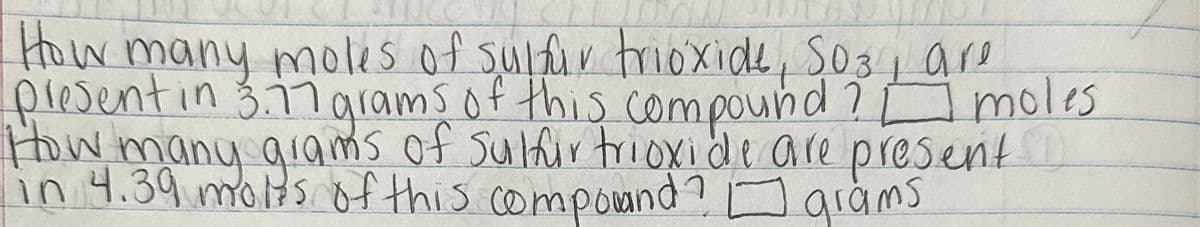 How many moles of sulfur trioxide, SO3, are
present in 3.77 grams of this compound? □ moles
How many grams of sulfur trioxide are present
in 4.39 moles of this compound? □ grams